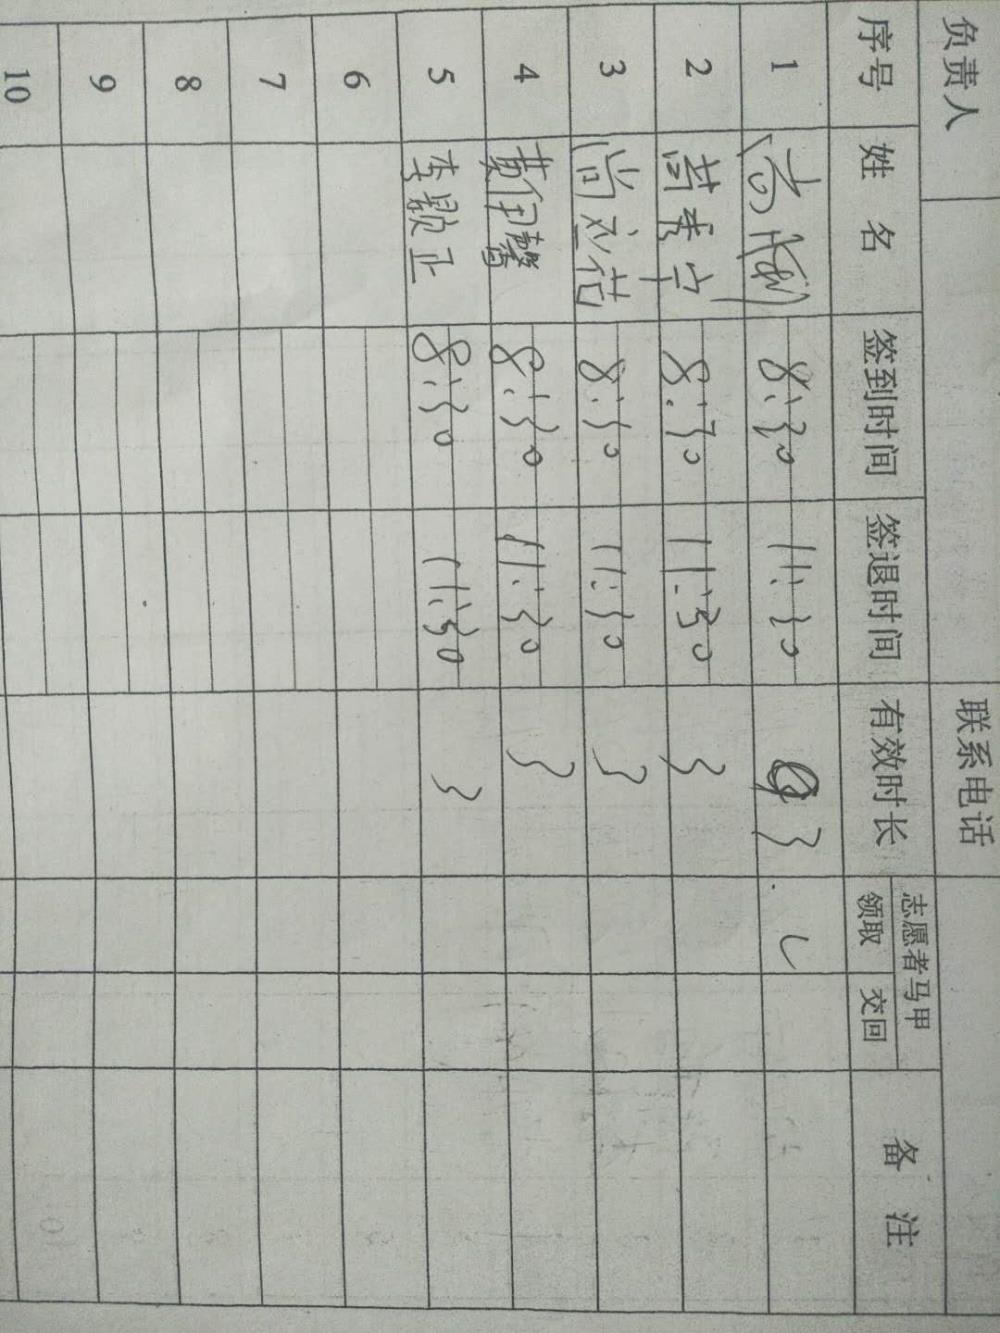 负责人 联系电话
序号 姓名 签到时间 签退时间 有效时长 志愿者马甲 领取 交回 备注
1 8:30 11:30 3
2 8:30 11:30 3
3 8:30 11:30 3
4 黄伊馨 8:30 11:30 3
5 李颖正 8:30 11:30 3
6
7
8
9
10